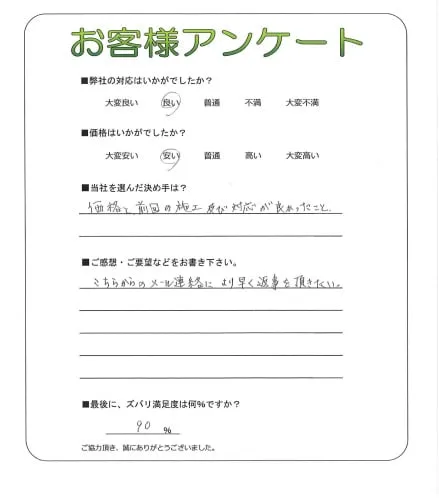 お客様アンケート
■弊社の対応はいかがでしたか?
大変良い 良い 普通 不満 大変不満
■価格はいかがでしたか?
大変安い 安い 普通 高い 大変高い
■当社を選んだ決め手は?
価格と、前回の施工及び対応が良かったこと。
■ご感想・ご要望などをお書き下さい。
こちらからのメール連絡により早く返事を頂きたい。
■最後に、ズバリ満足度は何%ですか?
90 %
ご協力頂き、誠にありがとうございました。